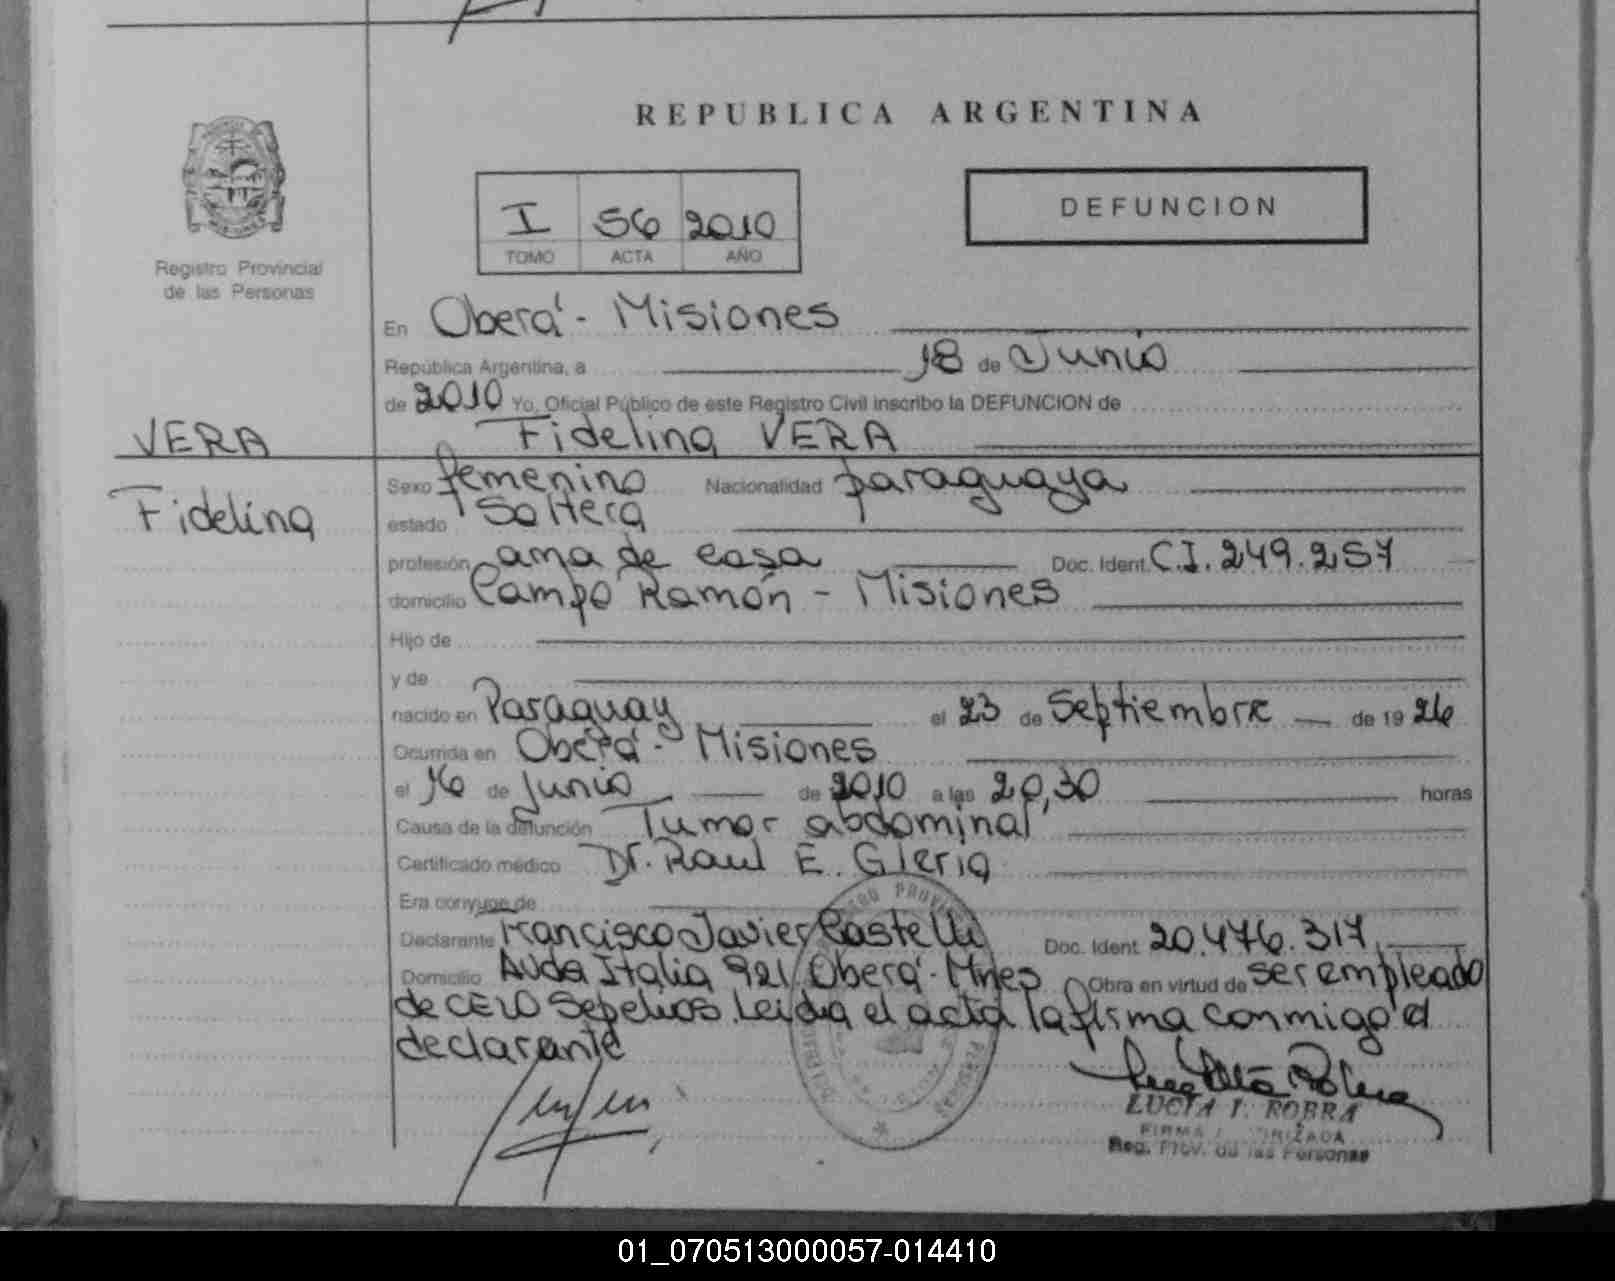 REPUBLICA ARGENTINA
I 56 2010
TOMO ACTA AÑO
DEFUNCION
Registro Provincial
de las Personas
En Oberá - Misiones
República Argentina, a 18 de Junio
de 2010 Yo, Oficial Público de este Registro Civil inscribo la DEFUNCION de
VERA
Fidelina VERA
Fidelina
Sexo femenino Nacionalidad paraguaya
estado Soltera
profesión ama de casa Doc. Ident. C.I. 249.257
domicilio Campo Ramón - Misiones
Hijo de
y de
nacido en Paraguay el 23 de Septiembre de 1926
Ocurrida en Oberá - Misiones
el 16 de Junio de 2010 a las 20,30 horas
Causa de la defunción Tumor abdominal
Certificado médico Dr. Raul E. Gleria
Era conyuge de
Declarante Francisco Javier Castelli Doc. Ident. 20.476.317
Domicilio Avda Italia 921 Oberá - Mnes Obra en virtud de ser empleado
de CELO Sepelios. Leida el acta la firma conmigo el
declarante
LUCIA I. ROBRA
FIRMA AUTORIZADA
Reg. Prov. de las Personas
01_070513000057-014410